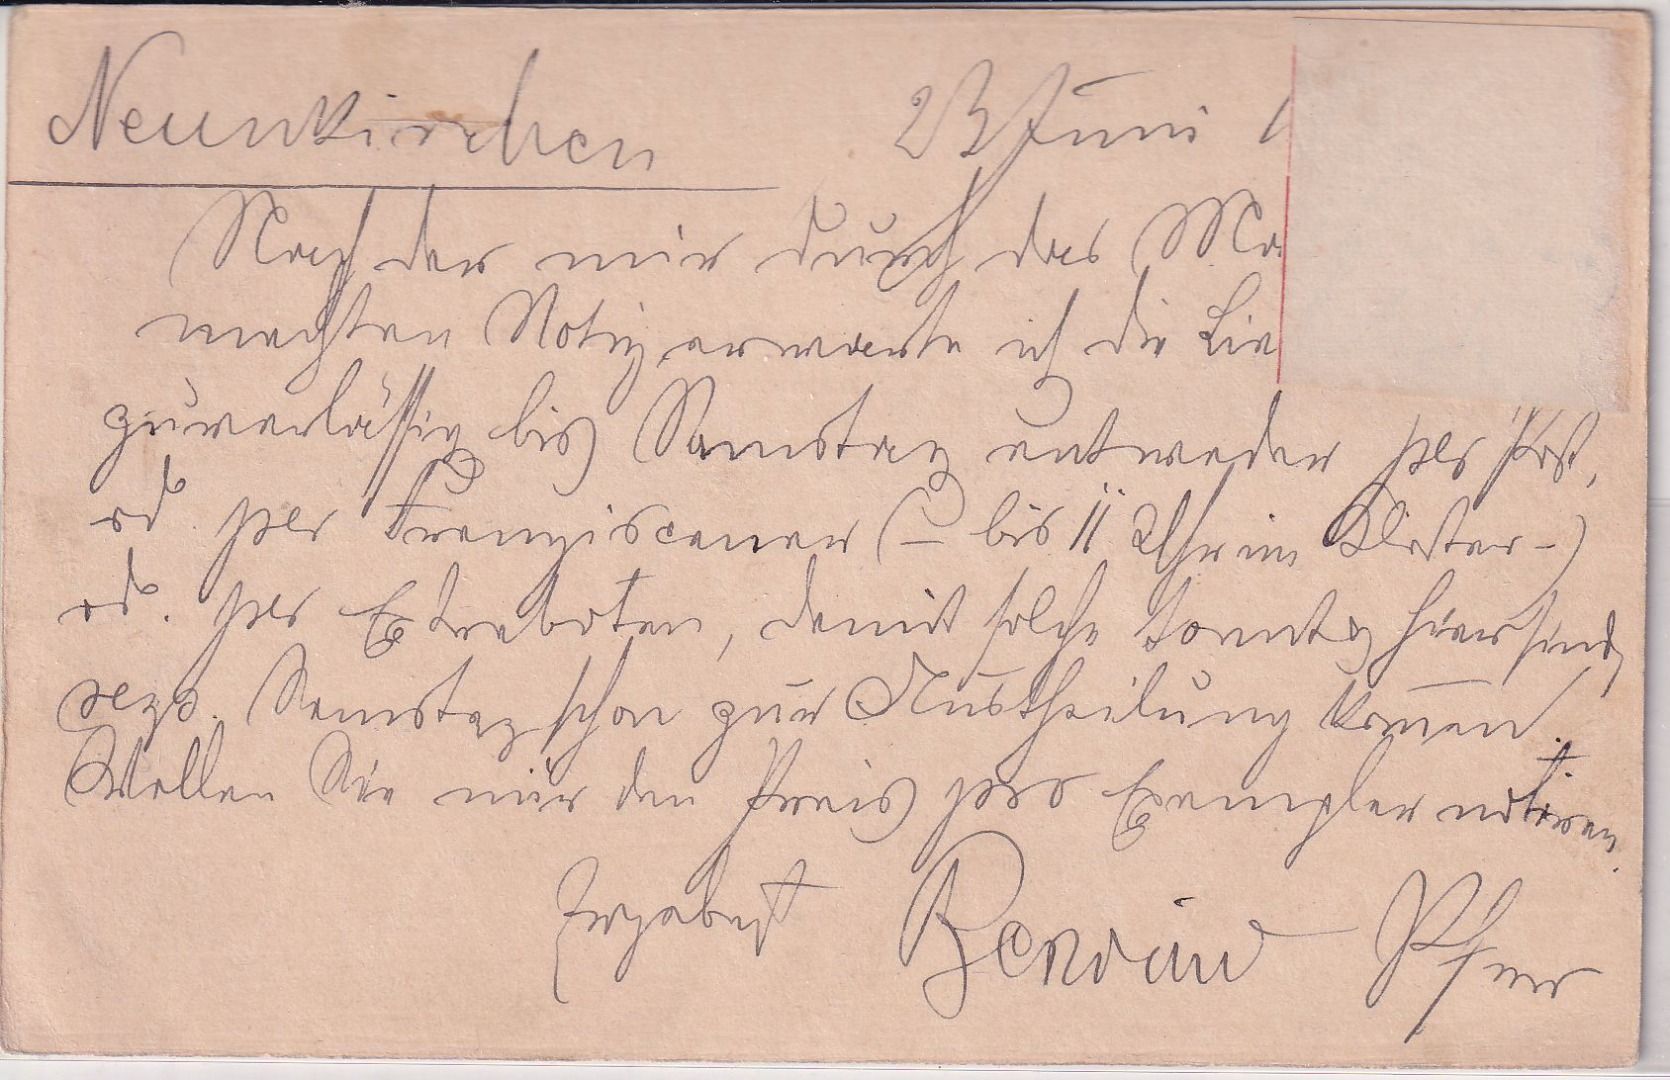 Neunkirchen 23 Juni 1
Nach der mir durch das Ma
machten Notiz erwarte ich die Lie
zuverlässig bis Samstag entweder per Post,
od. per Franziscaner (– bis 11 Uhr im Kloster –)
od. per Extraboten, damit solche Sonntag hier sind,
resp. Samstag schon zur Austheilung kom̅en.
Wollen Sie mir den Preis pro Exemplar notiren.
Ergebenst Pfrer